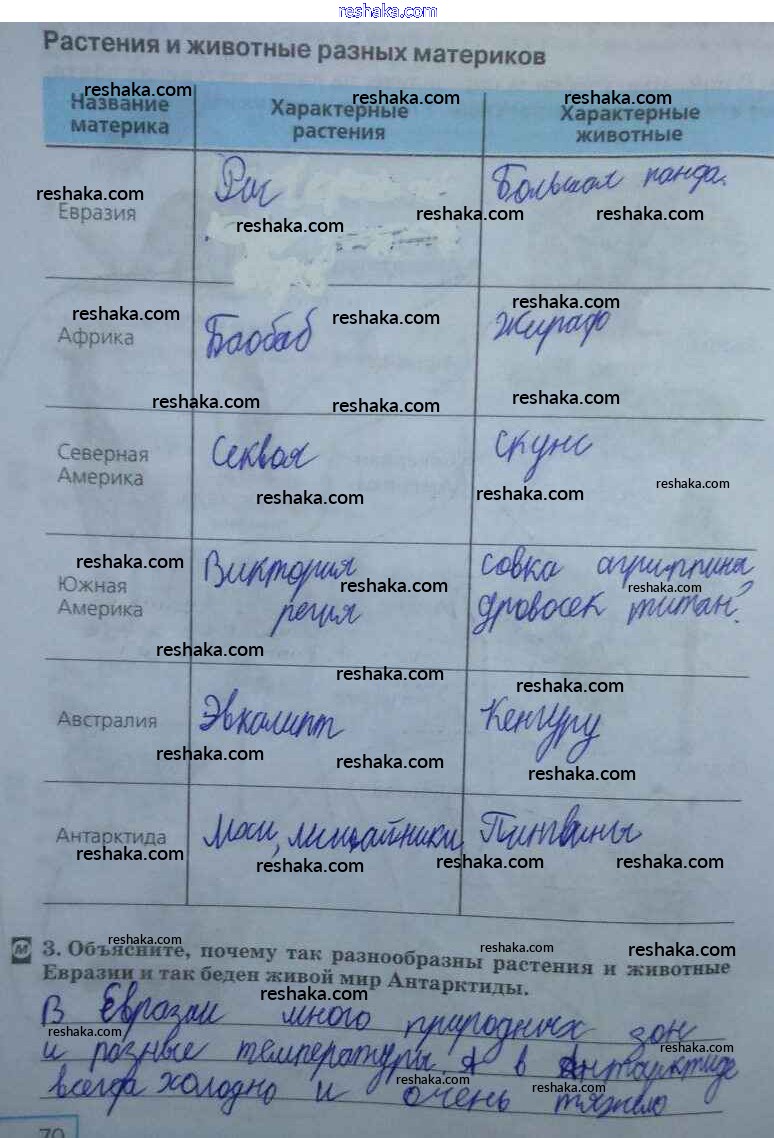 reshaka.com
Растения и животные разных материков
reshaka.com reshaka.com reshaka.com
Название материка
Характерные растения
Характерные животные
reshaka.com
Евразия
Рис
reshaka.com
Большая панда.
reshaka.com reshaka.com
reshaka.com
Африка
Баобаб
reshaka.com
Жираф
reshaka.com
reshaka.com reshaka.com reshaka.com
Северная
Америка
Секвоя
reshaka.com
скунс
reshaka.com reshaka.com
reshaka.com
Южная
Америка
Виктория
регия
reshaka.com
совка агриппина
reshaka.com
дровосек титан?
reshaka.com reshaka.com reshaka.com
Австралия
Эвкалипт
Кенгуру
reshaka.com reshaka.com reshaka.com
Антарктида
reshaka.com
Мхи, лишайники
reshaka.com
Пингвины
reshaka.com reshaka.com
reshaka.com reshaka.com reshaka.com
м
3. Объясните, почему так разнообразны растения и животные
Евразии и так беден живой мир Антарктиды.
reshaka.com
В Евразии много природных зон
reshaka.com reshaka.com
и разные температуры. А в Антарктиде
reshaka.com
всегда холодно и очень тяжело
reshaka.com reshaka.com
70